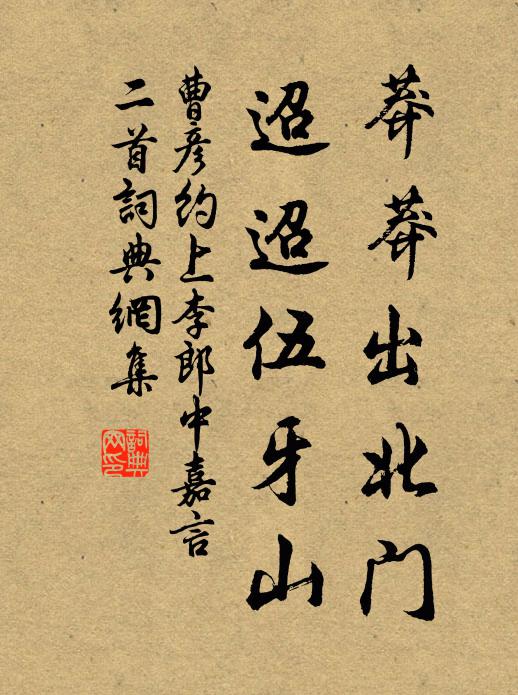 莽莽出北门
迢迢伍牙山
曹彦約上李郎中嘉言
二首詞典網集
詞典
网印